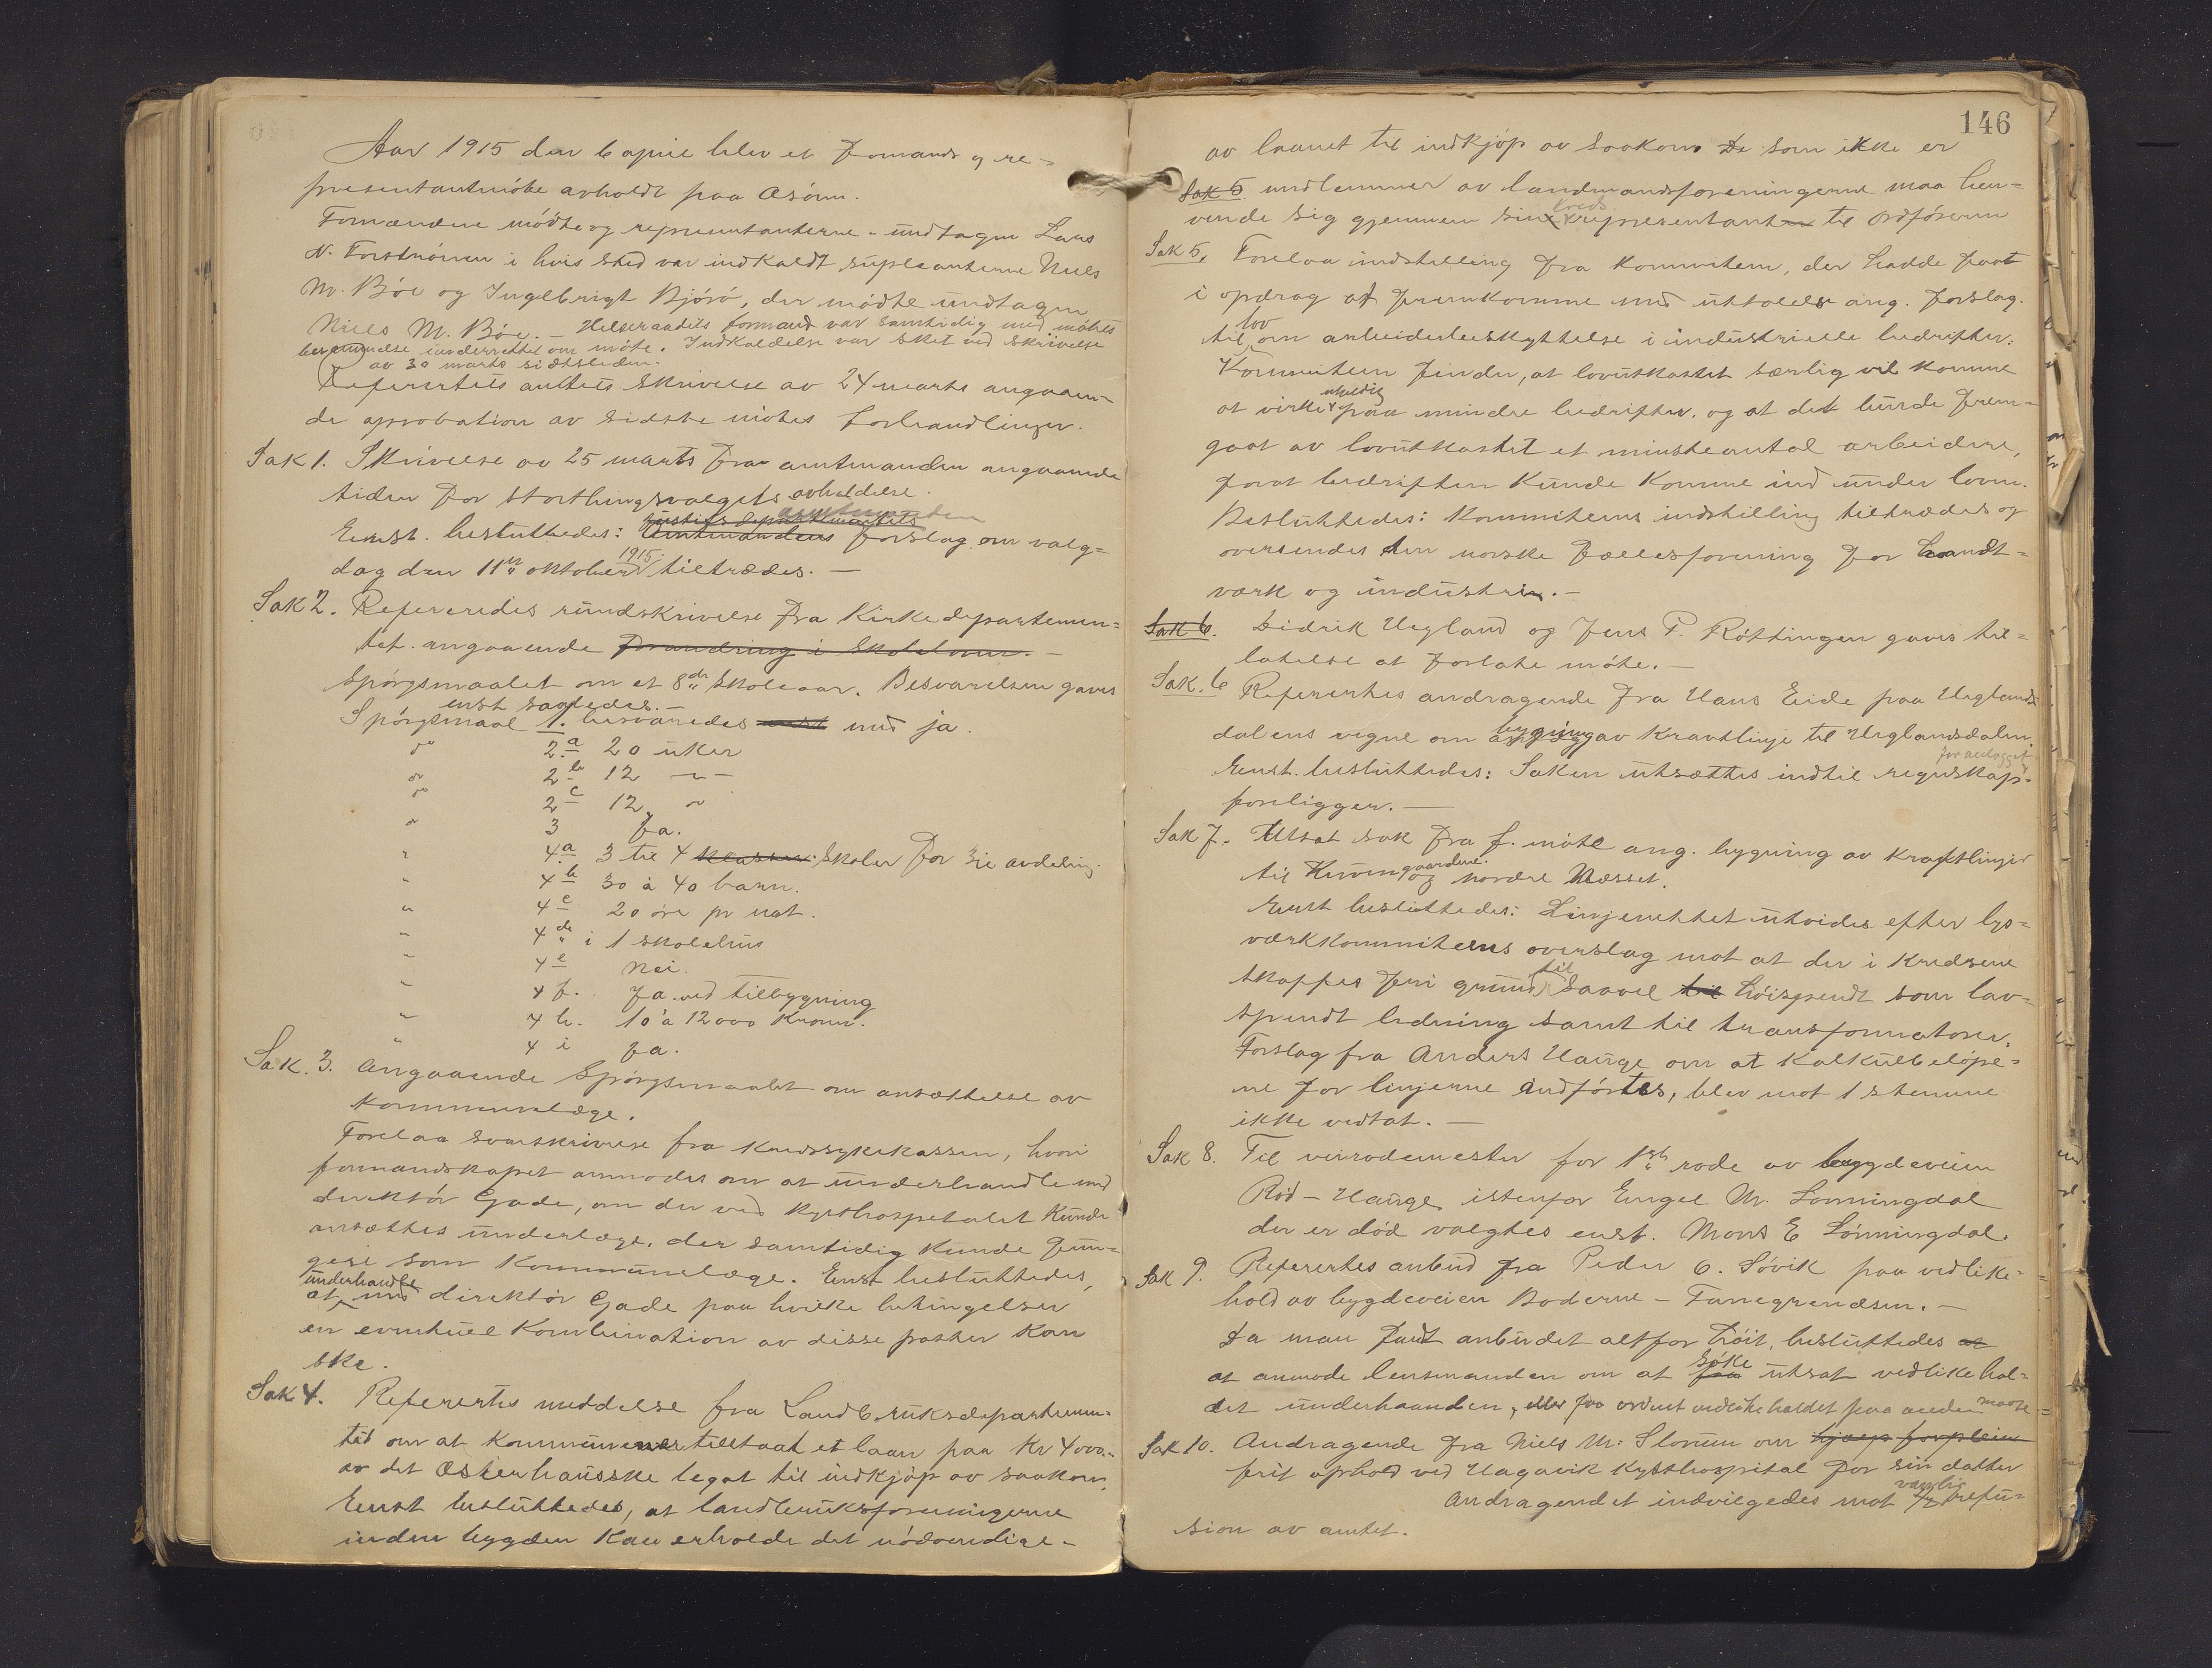 Aar 1915 den 6 april blev et formands og re-
presentantmöte avholdt paa Osören.
Formændene mödte og representanterne - undtagen Lars
N. Forströnen i hvis sted var indkaldt supleanterne Niels
M. Böe og Ingebrigt Bjösö, der mödte undtagen
Niels M. Böe. - Helseraadets formand var samtidig med mötets
berammelse underrettet om möte. Indkaldelse var sket ved skrivelse
av 30 marts sidstleden.
Refertes amtets skrivelse av 24 marts angaaen-
de aprobation av sidste mötes forhandlinger.
Sak 1. Skrivelse av 25 marts fra amtmanden angaaende
tiden for storthingsvalgets avholdelse.
justisdepartementets
Enst. besluttedes: Amtmandens forslag om valg-
dag den 11te oktober 1915 tiltrædes. -
Sak 2. Refereredes rundskrivelse fra Kirkedepartemen-
tet angaaende forandring i skoleloven. -
Spörgsmaalet om et 8de skoleaar. Besvarelsen gaves
enst saaledes. -
Spörgsmaal 1. besvaredes enst med ja.
" 2 a 20 uker
" 2 b 12 -"-
" 2 c 12 "
" 3 ja.
" 4 a 3 til 4 klasser skoler for 3ie avdeling.
" 4 b 30 à 40 barn.
" 4 c 20 öre pr nat.
" 4 d i 1 skolehus
" 4 e Nei.
" 4 f. Ja. ved tilbygning
" 4 h. 10 à 12000 kroner.
" 4 i ja.
Sak. 3. Angaaende Spörgsmaalet om ansættelse av
kommunelæge.
Forelaa svarskrivelse fra kredssykekassen, hvori
formandskapet anmodes om at underhandle med
direktör Gade, om der ved kysthospitalet kunde
ansættes underlæge, der samtidig kunde fun-
gere som kommunelæge. Enst besluttedes,
underhandle
at med direktör Gade paa hvilke betingelser
en eventuel kombination av disse poster kan
ske.
Sak 4. Refertes meddelse fra Landbruksdepartemen-
tet om at kommunen er tilstaat et laan paa Kr 4000.-
av det Astenhausske legat til indkjöp av saakorn.
Enst besluttedes, at landbruksforeningerne
inden bygden kan erholde det nödvendige -
146
av laanet til indkjöp av saakorn De som ikke er
Sak 5 medlemmer av landmandsforeningerne maa hen-
kreds
vende sig gjennem sin representanten til Ordföreren
Sak 5. Forelaa indstilling fra komiteen, der hadde faat
i opdrag at fremkomme med uttalelse ang. forslag
lov
til om arbeiderbeskyttelse i industrielle bedrifter.
Kommiteen finder, at lovutkastet særlig vil komme
uheldig
at virke paa mindre bedrifter, og at det burde frem-
gaat av lovutkastet et minsteantal arbeidere,
forat bedriften kunde komme ind under loven.
Besluttedes: Kommiteens indstilling tiltrædes og
oversendes den norske Fællesforening for Haandt-
værk og industrien. -
Sak 6. Didrik Hegland og Jens P. Röttingen gaves til-
latelse at forlate möte. -
Sak. 6 Refertes andragende fra Hans Eide paa Heglands-
dalens vegne om bygning av kravtlinje til Heglandsdalen.
for anlægget
Enst. besluttedes: Saken utsættes indtil regnskap
foreligger. -
Sak 7. Utsat sak fra f. möte ang. bygning av kraftlinjer
til Kuvengaardene. og nordre Næsset.
Enst besluttedes: Linjenettet utvides efter lys-
værkkommiteens overslag mot at der i kredsene
til
skaffes fri grund saavel til höispendt som lav-
spendt ledning samt til transformatorer.
Forslag fra Anders Hauge om at kalkulbelöpe-
ne for linjerne indförtes, blev mot 1 stemme
ikke vedtat. -
Sak 8. Til veirodemester for 1ste rode av bygdeveien
Röd - Hauge istenfor Engel M. Lönningdal
der er död valgtes enst. Mons E Lönningdal.
Sak 9. Refertes anbud fra Peder O. Sövik paa vedlike-
hold av bygdeveien Boderne - Fanegrændsen. -
Da man fant anbudet altfor höit, besluttedes at
söke
at anmode lensmanden om at faa utsat vedlikehol-
det underhaanden, eller faa ordnet vedlikeholdet paa anden maate
Sak 10. Andragende fra Niels M. Storum om hjælp forpleie
frit ophold ved Hagavik kysthospital for sin datter
vanlig
Andragendet indvilgedes mot refu-
sion av amtet.